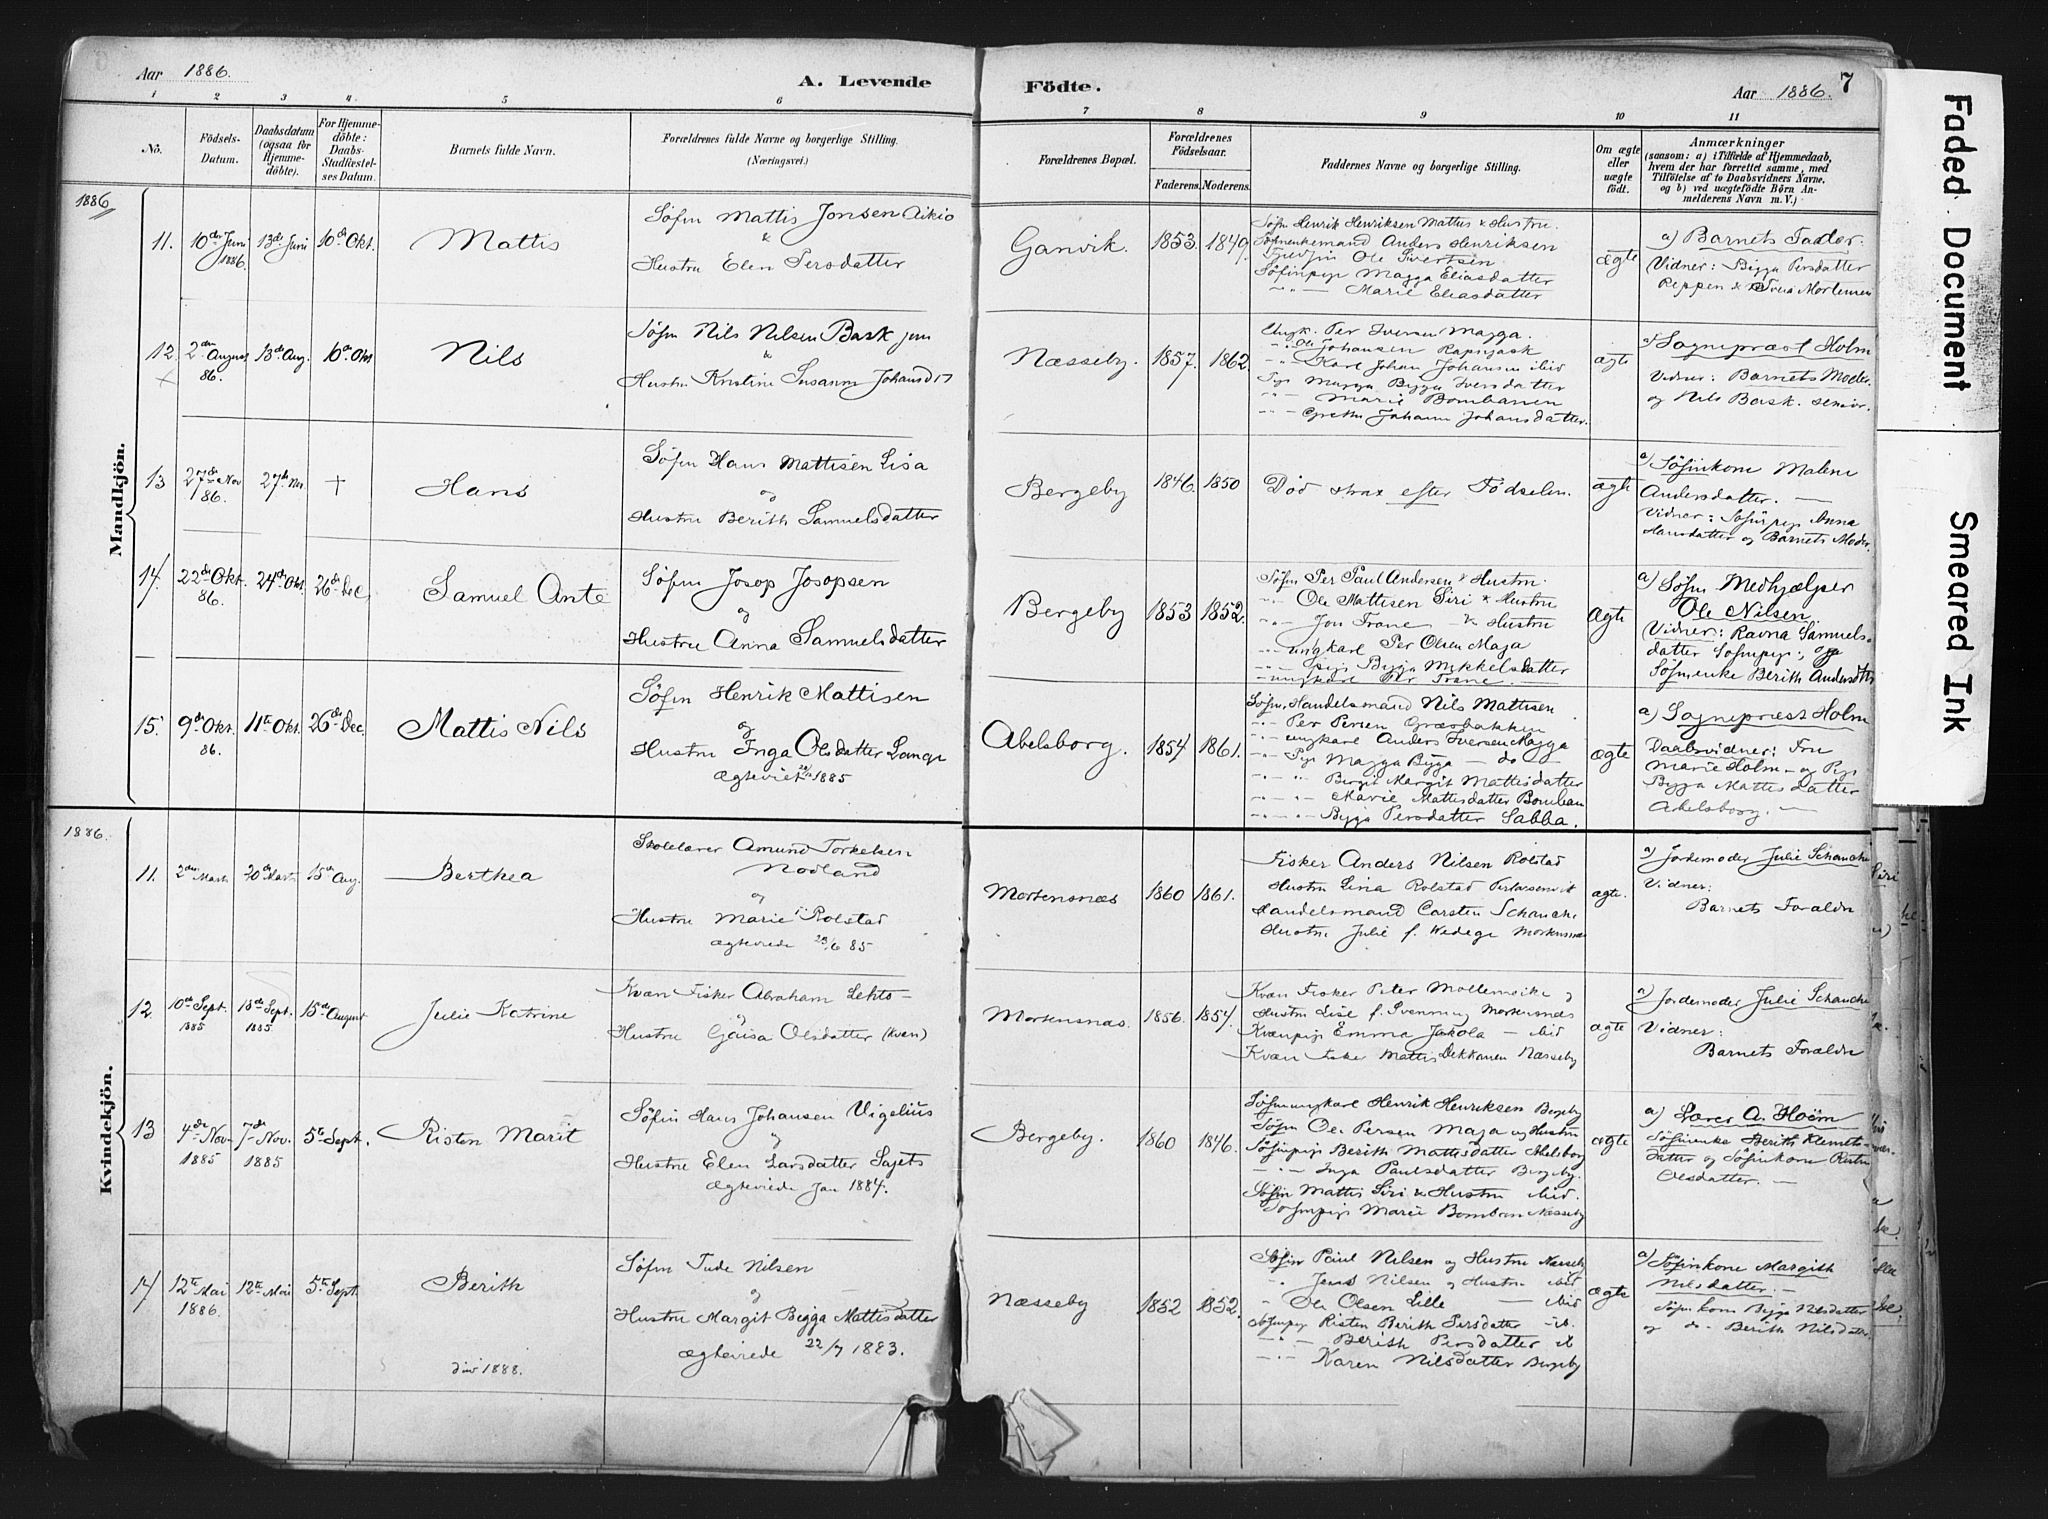 Aar 1886.
A. Levende
Födte.
Aar 1886.
7
1 2 3 4 5 6 7 8 9 10 11
No.
Födsels-
Datum.
Daabsdatum
(ogsaa for
Hjemme-
döbte).
For Hjemme-
döbte:
Daabs-
Stadfæstel-
ses Datum.
Barnets fulde Navn.
Forældrenes fulde Navne og borgerlige Stilling.
(Næringsvei.)
Forældrenes Bopæl.
Forældrenes
Födselsaar.
Faderens. Moderens.
Faddernes Navne og borgerlige Stilling.
Om ægte
eller
uægte
födt.
Anmærkninger
(saasom: a) i Tilfælde af Hjemmedaab,
hvem der har forrettet samme, med
Tilföielse af to Daabsvidners Navne,
og b) ved uægtefödte Börn An-
melderens Navn m. V.)
1886
Mandkjön.
11.
10de Juni
1886.
13de Juni
10de Okt.
Mattis
Söfin Mattis Jonsen Aikio
&
Hustru Elen Persdatter
Ganvik.
1853. 1849.
Söfn Henrik Henriksen Mattis & Hustru.
Anders Henriksen
Ole Sivertsen
Söfinpige Magga Eliasdatter
Marie Eliasdatter
ægte
a) Barnets Fader.
Vidner: Bigga Persdatter
12.
2den August
86.
13de Aug.
10de Okt
Nils
Söfn Nils Nilsen Bask jun
&
Hustru Kristine Susanne Johansdtr
Næsseby.
1857. 1862.
Ungk. Per Iversen Magga.
Ole Johansen
Karl Johan Johansen ibid
Pige Magga Bigga Iversdatter
Marie Bomban
Grethe Johanne Johansdatter.
ægte
a) Sognepræst Holm
Vidner: Barnets Moder.
og Nils Bask. senior.
13
27de Nov
86.
27de Nov.
+
Hans
Söfn Hans Mattisen Lisa
og
Hustru Berith Samuelsdatter
Bergeby
1846. 1850
Död strax efter Födselen.
ægte
a) Söfinkone Malene
Andersdatter. —
Vidner: Söfinpige Anna
Hansdatter og Barnets Moder.
14.
22de Okt.
86.
24de Okt.
26de Dec.
Samuel Ante
Söfin Josop Josopsen
og
Hustru Anna Samuelsdatter
Bergeby
1853 1852.
Söfin Per Paul Andersen & Hustru.
Ole Mattisen Siri & Hustru
Jon Trane & Hustru
ungkarl Per Olsen Maja
Pige Bigga Mikkelsdatter
ungkarl Per Trane.
ægte
a) Söfn Medhjælper
Ole Nilsen.
Vidner: Ravna Samuels-
datter Söfinpige, og
Söfinenke Berith Andersdtr
15.
9de Okt.
86.
11te Okt.
26de Dec.
Mattis Nils
Söfin Henrik Mattisen
og
Hustru Inga Olsdatter Lange
Ægteviet 1885
Abelsborg.
1854 1861.
Söfn, Handelsmand Nils Mattisen
Per Persen Græsbakken
ungkarl Anders Iversen Magga
Pige Magga Bigga — do —
Bergit Margit Mattisdatter
Marie Mattisdatter Bomban
Bigga Persdatter Sabba.
ægte
a) Sognepræst Holm
Daabsvidner: Fru
Marie Holm — og Pige
Bigga Mattisdatter
Abelsborg. —
1886.
Kvindekjön.
11.
2den Marts
20de Marts
15de Aug.
Berthea
Skolelærer Amund Torkelsen
Nodland
og
Hustru Marie Rolstad
ægteviede 29/6 85
Mortensnæs
1860 1861.
Fisker Anders Nilsen Rolstad
Hustru Lina Rolstad
Handelsmand Carsten Schanche
Hustru Julie f. Wedege Mortensnæs
ægte.
a) Jordemoder Julie Schanche
Vidner:
Barnets Forældre
12.
10de Sept.
1885
13de Sept.
1885
15de August
Julie Katrine
Kvæn Fisker Abraham Lehto —
og
Hustru Olsdatter (kvæn)
Mortensnæs.
1856. 1854.
Kvæn Fisker Peter og
Hustru Lise f. Svenning Mortensnæs
Kvænpige Emma Jakola — ibid
Kvæn Fisker Mattis Dekkanen Næsseby
ægte
a) Jordemoder Julie Schanche
Vidner:
Barnets Forældre
13
4de Nov.
1885
7de Nov.
1885
5te Sept.
Risten Marit
Söfin Hans Johansen Vigelius
og
Hustru Elen Larsdatter Sajets
Ægteviede Jan 1884.
Bergeby.
1860 1846.
Söfinungkarl Henrik Henriksen Bergeby
Söfin Ole Persen Maja og Hustru
Söfinpige Berith Mattisdatter Abelsborg
Inga Paulsdatter Bergeby
Söfin Mattis Siri & Hustru ibid.
Söfinpige Marie Bomban Næsseby
ægte
a) Lærer A. Hoëm
Söfinenke Berith Klemets-
datter og Söfinkone Risten
Olsdatter. —
14
12te Mai
1886.
12te Mai
5te Sept.
Berith
död 1888.
Söfin Tude Nilsen
og
Hustru Margit Bigga Mattisdatter
ægteviede 22/7 1883.
Næsseby
1852 1852.
Söfin Paul Nilsen og Hustru Næsseby
Jens Nilsen og Hustru ibid
Ole Olsen Lille — ibid
Söfinpige Risten Berith Persdatter ib.
Berith Persdatter ib
Karen Nilsdatter Bergeby
ægte
a) Söfinkone Margith
Nilsdatter. —
Söfinkone Bigga Nilsdatter
og do Berith Nilsdatter
Faded Document
Smeared Ink